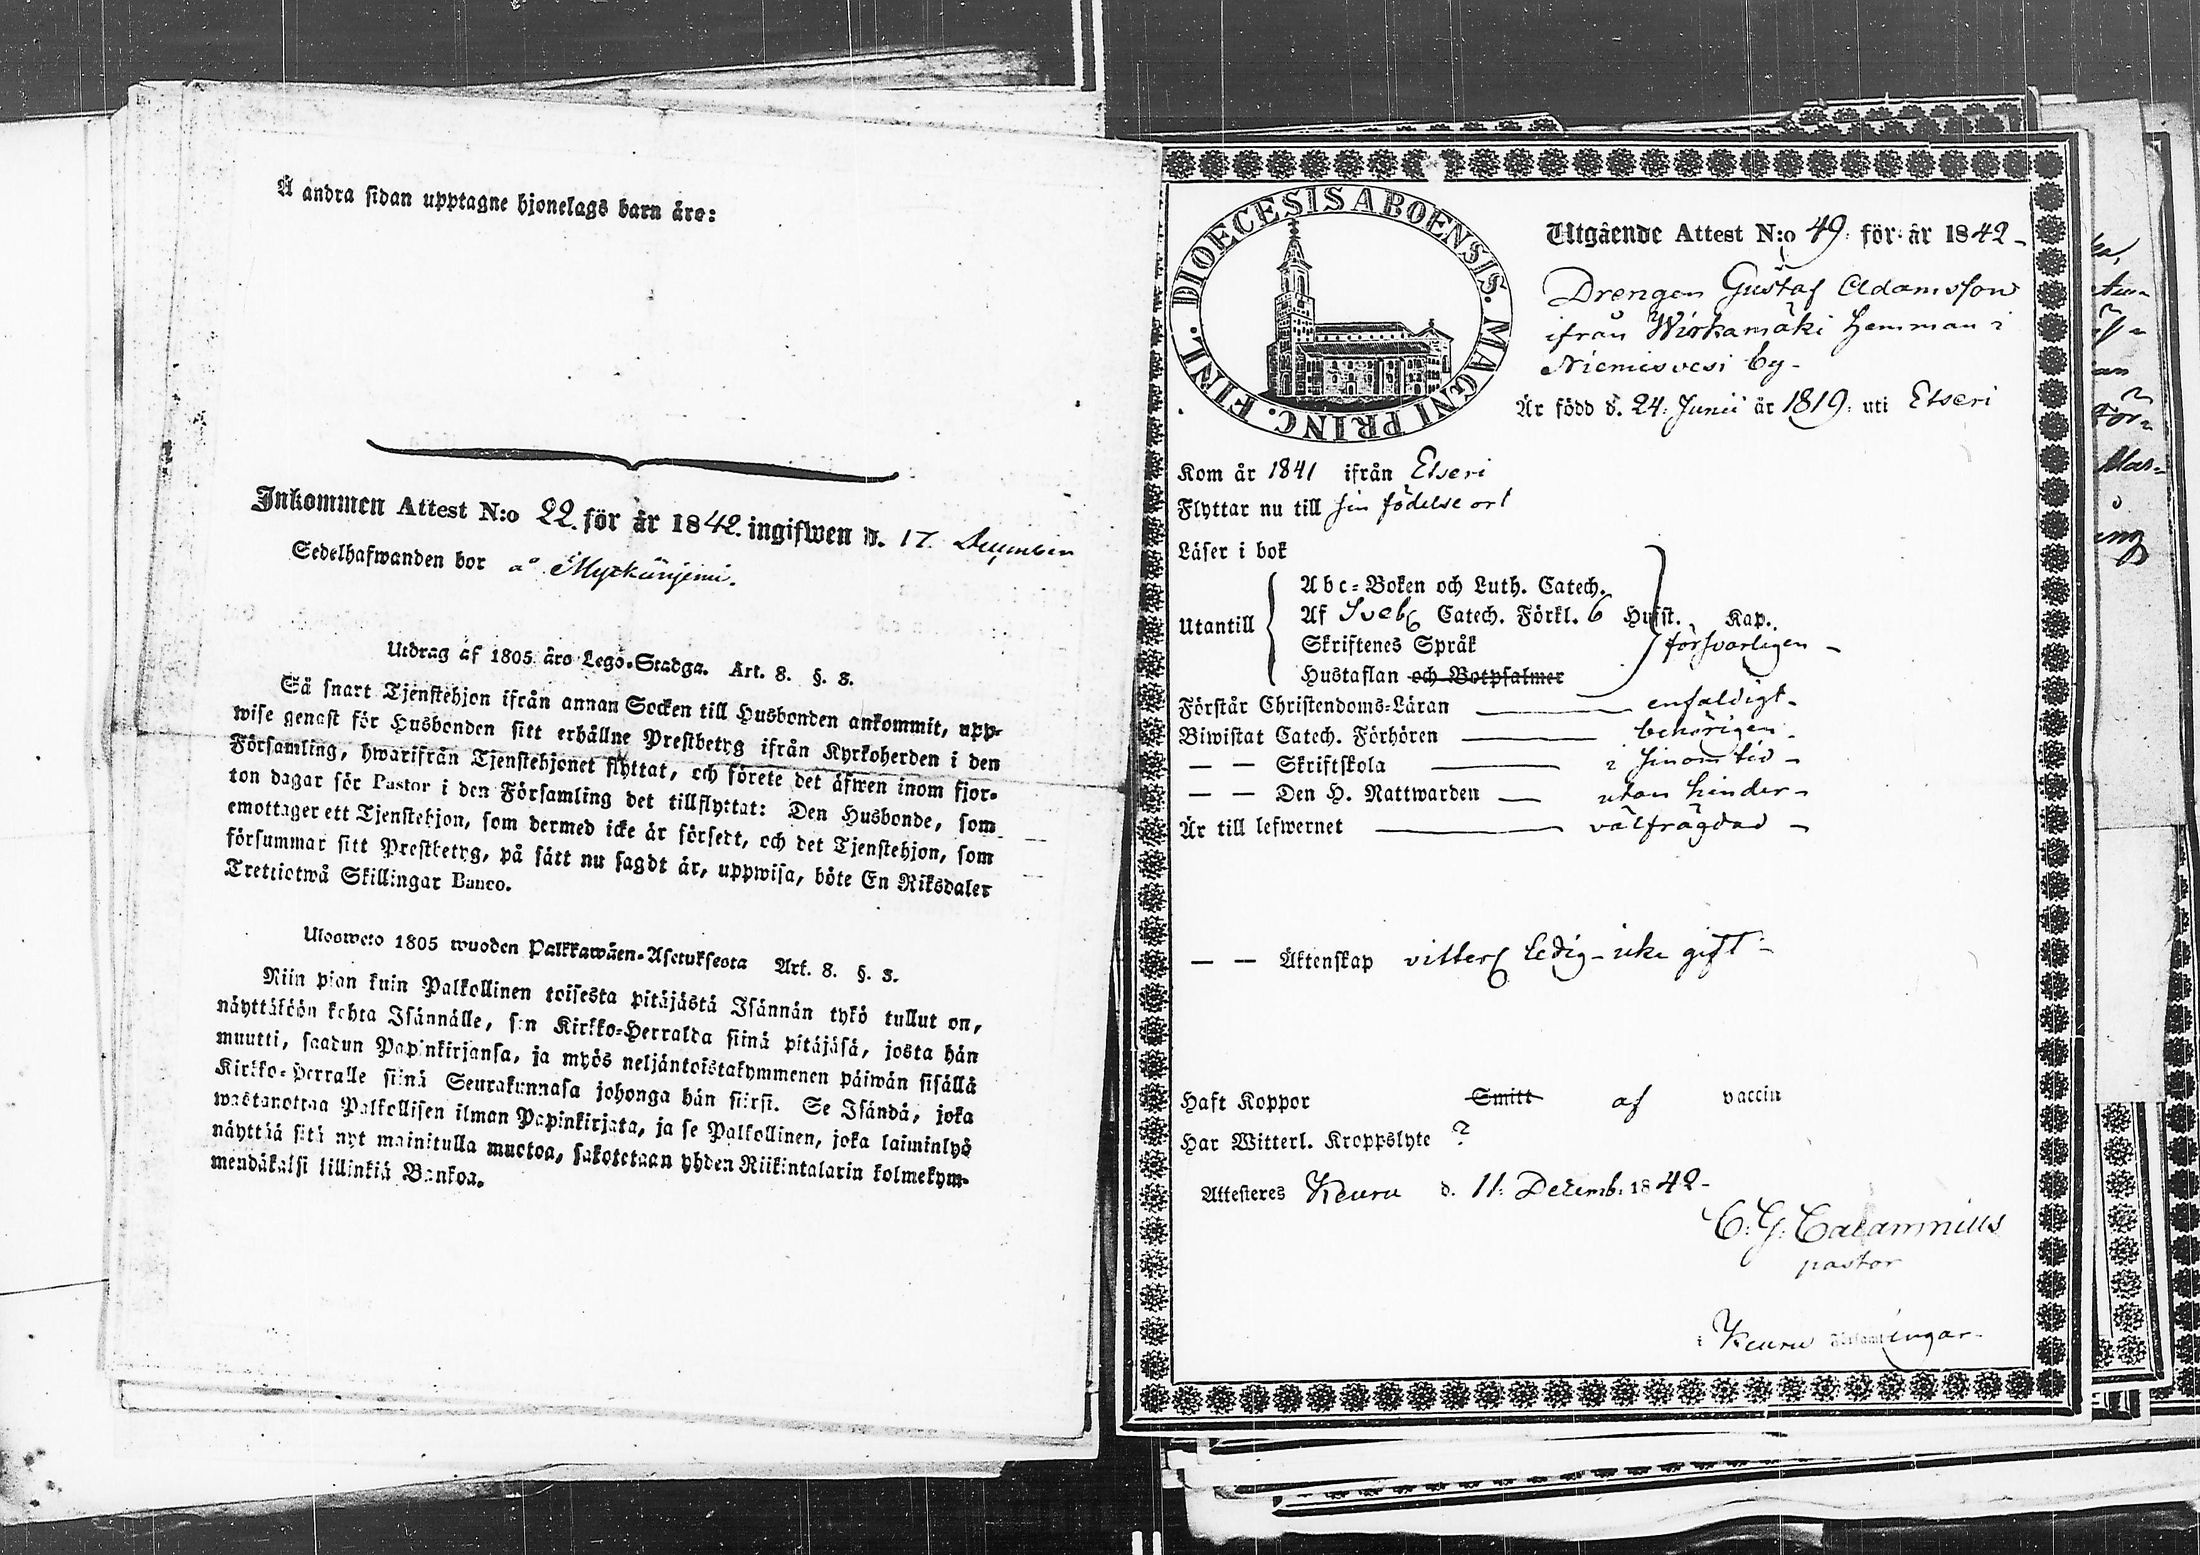 Å andra sidan upptagne hjonelags barn äro:
Inkommen Attest N:o 22. för år 1842. ingifwen d. 17. December
Sedelhafwanden bor å Myckänjemi.
Utdrag af 1805 års Lego-Stadga. Art. 8. §. 3.
Så snart Tjenstehjon ifrån annan Socken till Husbonden ankommit, upp-
wise genast för Husbonden sitt erhållne Prestbetyg ifrån Kyrkoherden i den
Församling, hwarifrån Tjenstehjonet flyttat, och förete det äfwen inom fjor-
ton dagar för Pastor i den Församling det tillflyttat: Den Husbonde, som
emottager ett Tjenstehjon, som dermed icke är försedt, och det Tjenstehjon, som
försummar sitt Prestbetyg, på sätt nu sagdt är, uppwisa, böte En Riksdaler
Trettiotwå Skillingar Banco.
Ulosweto 1805 wuoden Palkkawäen-Asetuksesta Art. 8. §. 3.
Niin pian kuin Palkollinen toisesta pitäjästä Isännän tykö tullut on,
näyttäköön kohta Isännälle, sen Kirkko-Herralda siinä pitäjäsä, josta hän
muutti, saadun Papinkirjansa, ja myös neljäntoistakymmenen päiwän sisällä
Kirkko-Herralle siinä Seurakunnasa johonga hän siirsi. Se Isändä, joka
wastanottaa Palkollisen ilman Papinkirjata, ja se Palkollinen, joka laiminlyö
näyttää sitä nyt mainitulla muotoa, sakotetaan yhden Riikintalarin kolmekym-
mendäkaksi killinkiä Bankoa.
DIOECESIS ABOENSIS. MAGNI PRINC. FINL.
Utgående Attest N:o 49. för år 1842-
Drengen Gustaf Adamsson
ifrån Wirkamäki hemman i
Niemisvesi by-
Är född d. 24: Junii år 1819. uti Etseri
Kom år 1841 ifrån Etseri
Flyttar nu till sin födelse ort
Läser i bok
Abc-Boken och Luth. Catech.
Utantill Af Sveb. Catech. Förkl. 6 Hufst. Kap.
Skriftenes Språk försvarligen -
Hustaflan och Botpsalmer
Förstår Christendoms-Läran enfaldigt-
Biwistat Catech. Förhören behörigen-
— — Skriftskola i sinom tid -
— — Den H. Nattwarden utan hinder-
Är till lefwernet välfrägdad -
— — Äktenskap vitterl. ledig - icke gift -
Haft Koppor Smitt af vaccin
Har Witterl. Kroppslyte ?
Attesteres Keuru d. 11. Decemb. 1842-
C. G. Calamnius
pastor
i Keuru Församlingar.